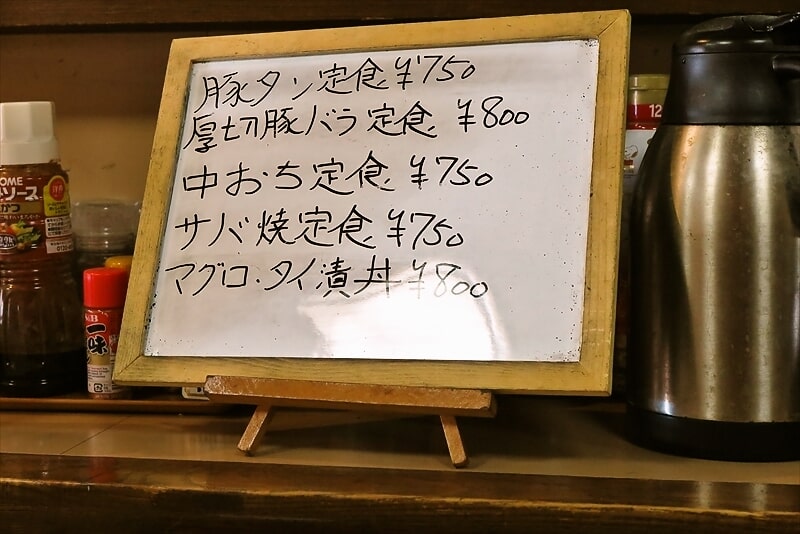 豚タン定食 ¥750
厚切豚バラ定食 ¥800
中おち定食 ¥750
サバ焼定食 ¥750
マグロ・タイ漬丼 ¥800
OME
ソース
かつ
S&B
一味
12